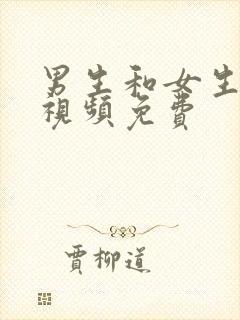 男生和女生
視頻免費
賈柳道